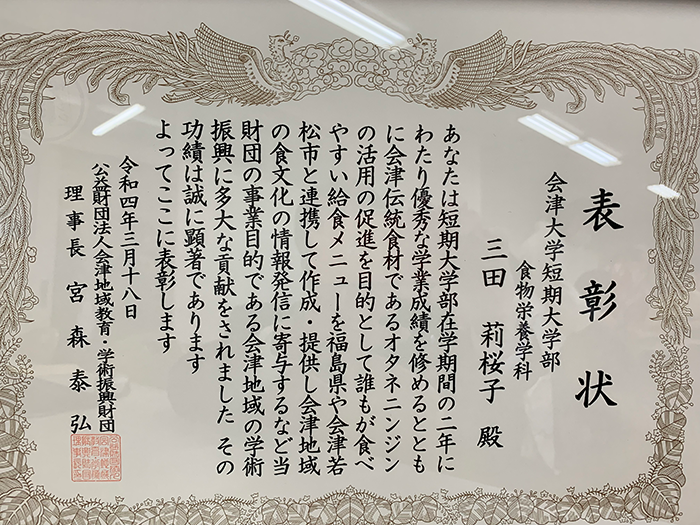 表彰状
会津大学短期大学部
食物栄養学科
三田 莉桜子 殿
あなたは短期大学部在学期間の二年に
わたり優秀な学業成績を修めるととも
に会津伝統食材であるオタネニンジン
の活用の促進を目的として誰もが食べ
やすい給食メニューを福島県や会津若
松市と連携して作成・提供し会津地域
の食文化の情報発信に寄与するなど当
財団の事業目的である会津地域の学術
振興に多大な貢献をされました その
功績は誠に顕著であります
よってここに表彰します
令和四年三月十八日
公益財団法人会津地域教育・学術振興財団
理事長 宮森泰弘